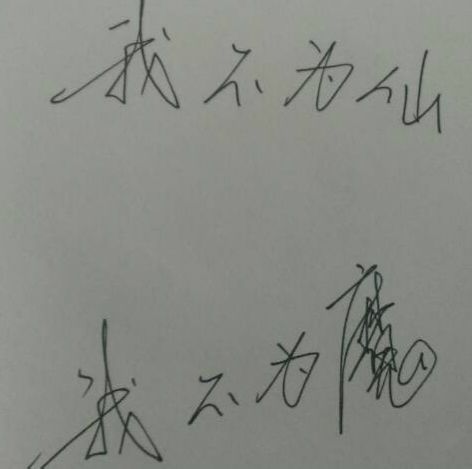 我不为仙
我不为魔